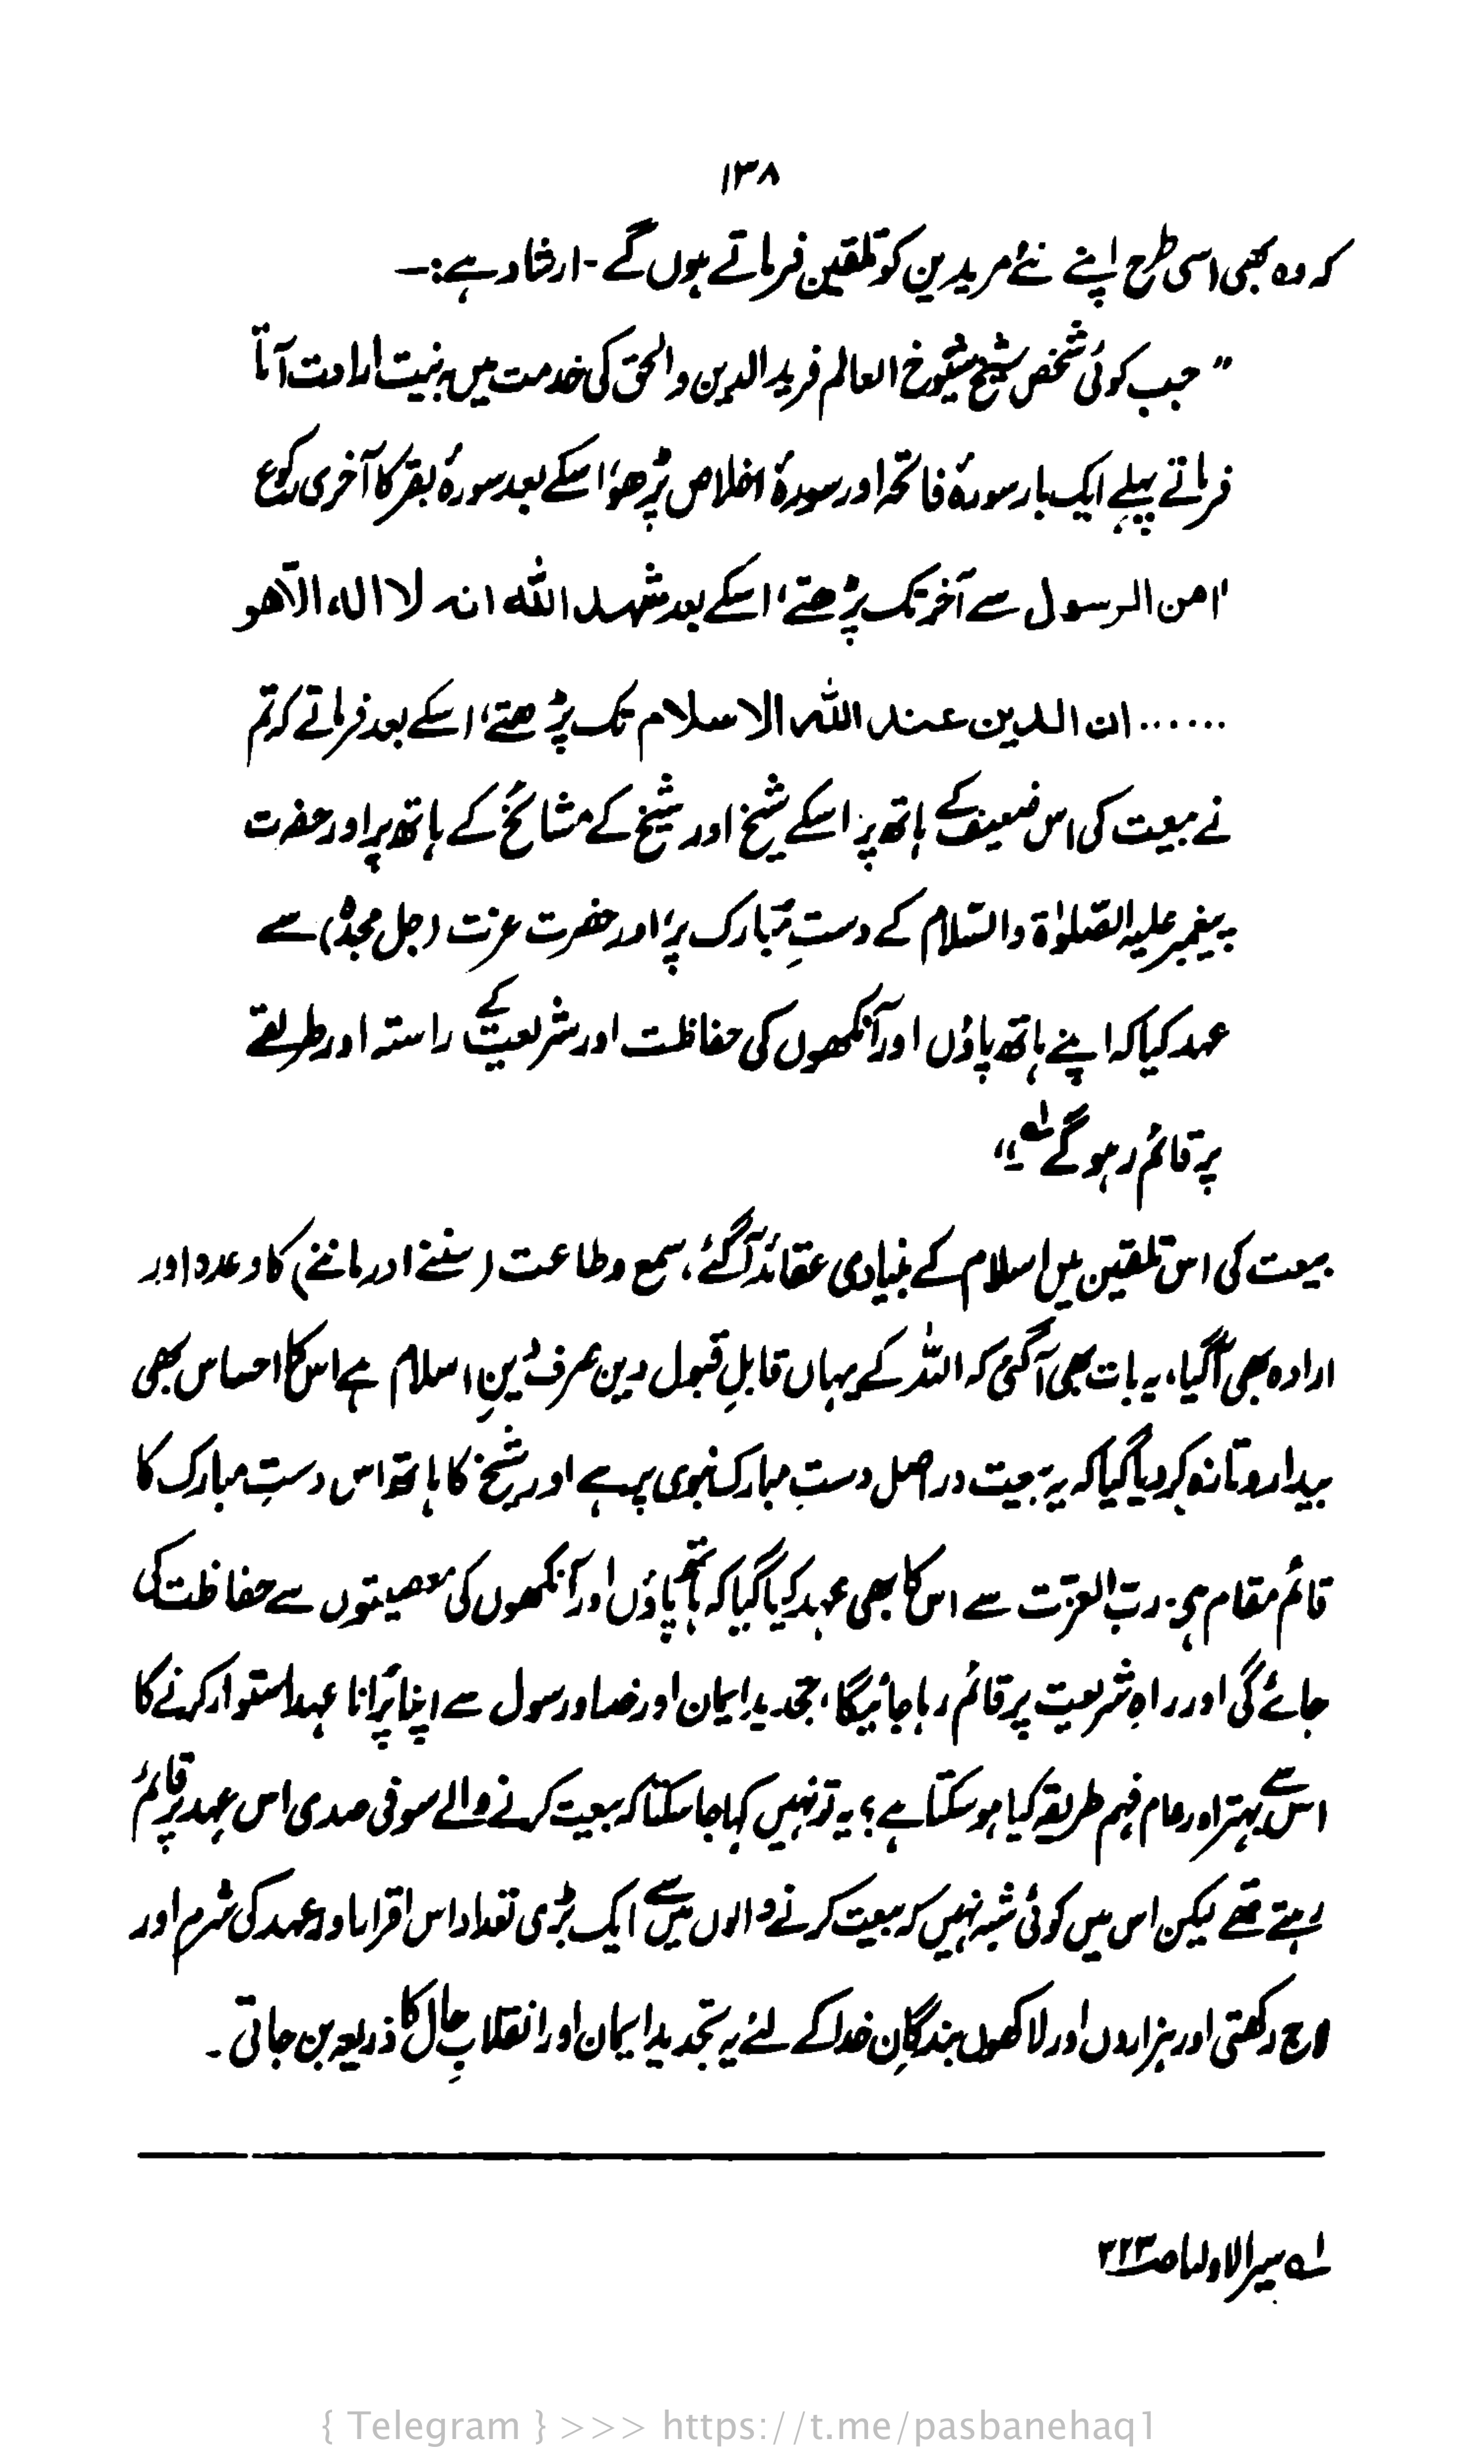 ۱۳۸
کہ وہ بھی اسی طرح اپنے نئے مریدین کو تلقین فرماتے ہوں گے - ارشاد ہے:—
" جب کوئی شخص شیخ شیوخ العالم فرید الدین والحق کی خدمت میں بہ نیت ارادت آتا
فرماتے پہلے ایک بار سورۂ فاتحہ اور سورۂ اخلاص پڑھو، اسکے بعد سورۂ بقر کا آخری رکوع
اٰمن الرسول سے آخر تک پڑھتے، اسکے بعد شہد اللہ انہ لا الہ الّا ھو
...... ان الدین عند اللہ الاسلام تک پڑھتے، اسکے بعد فرماتے کہ تم
نے بیعت کی اس ضعیف کے ہاتھ پر اسکے شیخ اور شیخ کے مشائخ کے ہاتھ پر اور حضرت
پیغمبر علیہ الصّلوٰۃ والسّلام کے دستِ مبارک پر، اور حضرت عزت (جل مجدہٗ) سے
عہد کیا کہ اپنے ہاتھ پاؤں اور آنکھوں کی حفاظت اور شریعت کے راستہ اور طریقے
پر قائم رہو گے لہ"
بیعت کی اس تلقین میں اسلام کے بنیادی عقائد آگئے، سمع و طاعت (سننے اور ماننے) کا وعدہ اور
ارادہ بھی آگیا، یہ بات بھی آگئی کہ اللہ کے یہاں قابلِ قبول دین صرف دینِ اسلام ہے اس کا احساس بھی
بیدار و تازہ کر دیا گیا کہ یہ بیعت در اصل دستِ مبارک نبوی پر ہے اور شیخ کا ہاتھ اس دستِ مبارک کا
قائم مقام ہی، ربّ العزّت سے اس کا بھی عہد کیا گیا کہ ہاتھ پاؤں اور آنکھوں کی معصیتوں سے حفاظت کی
جائے گی اور راہِ شریعت پر قائم رہا جائیگا، تجدیدِ ایمان اور خدا و رسول سے اپنا پُرانا عہد استوار کرنے کا
اس سے بہتر اور عام فہم طریقہ کیا ہو سکتا ہے؟ یہ تو نہیں کہا جا سکتا کہ بیعت کرنے والے سو فی صدی اس عہد پر قائم
رہتے تھے لیکن اس میں کوئی شبہ نہیں کہ بیعت کرنے والوں میں سے ایک بڑی تعداد اس اقرار و عہد کی شرم اور
لاج رکھتی اور ہزاروں اور لاکھوں بندگانِ خدا کے لئے یہ تجدیدِ ایمان اور انقلابِ حال کا ذریعہ بن جاتی -
لہ سیر الاولیا صـ ۳۲۳
{ Telegram } >>> https://t.me/pasbanehaq1